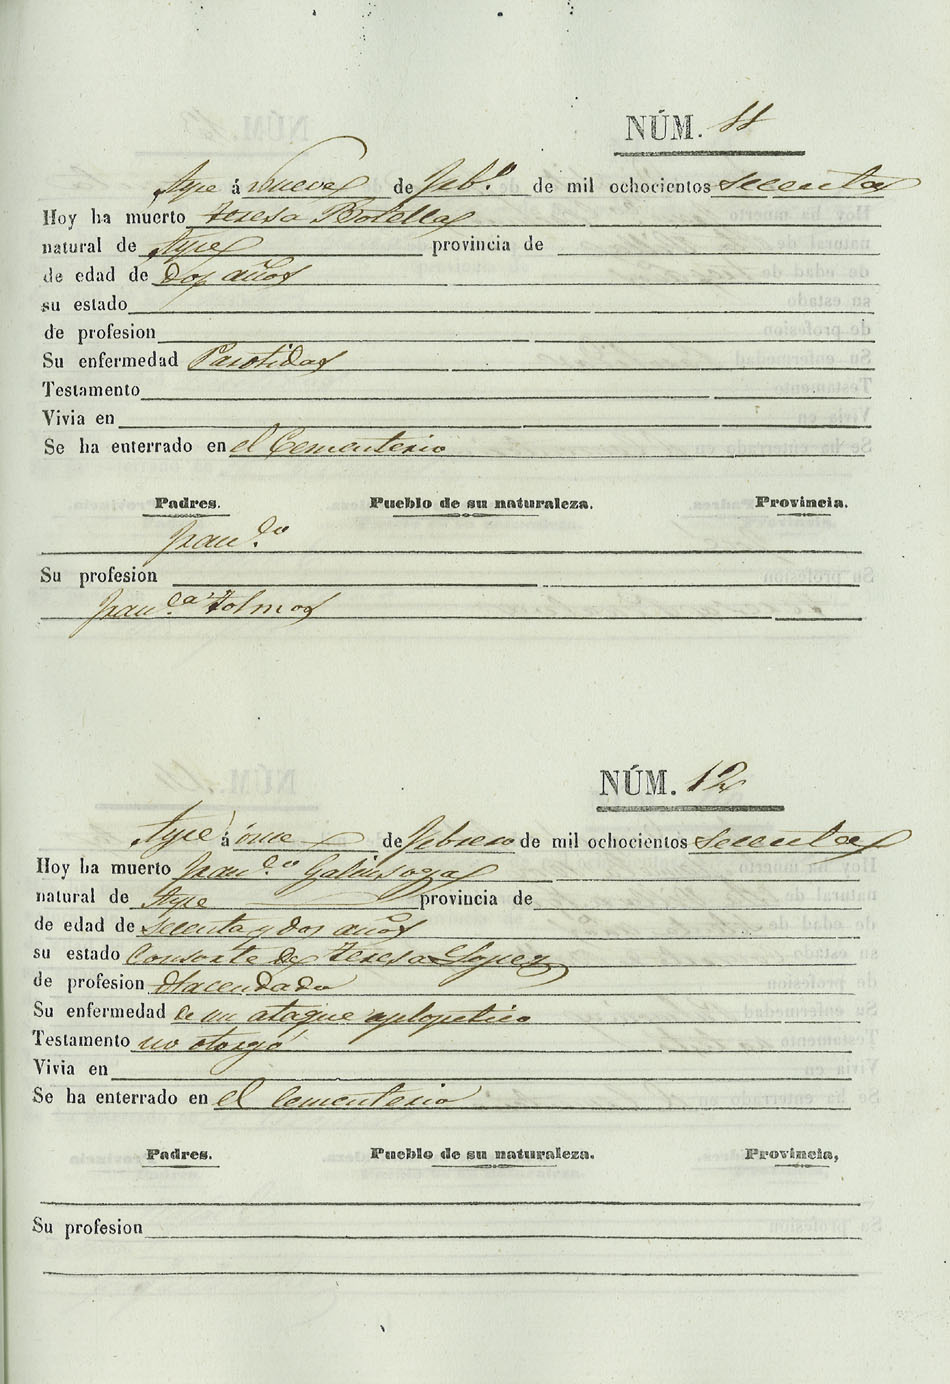 NÚM. 11
Aspe á nueve de Feb.º de mil ochocientos secenta
Hoy ha muerto Teresa Botella
natural de Aspe provincia de
de edad de Dos años
su estado
de profesion
Su enfermedad Parotidas
Testamento
Vivia en
Se ha enterrado en el Cementerio
Padres. Pueblo de su naturaleza. Provincia.
Fran.co
Su profesion
Fran.ca Tolmos
NÚM. 12
Aspe á once de Febrero de mil ochocientos secenta
Hoy ha muerto Fran.co Galinsoga
natural de Aspe provincia de
de edad de secenta y dos años
su estado Consorte de Teresa Lopez
de profesion Hacendado
Su enfermedad de un ataque aplopetico
Testamento no otorgó
Vivia en
Se ha enterrado en el Cementerio
Padres. Pueblo de su naturaleza. Provincia,
Su profesion